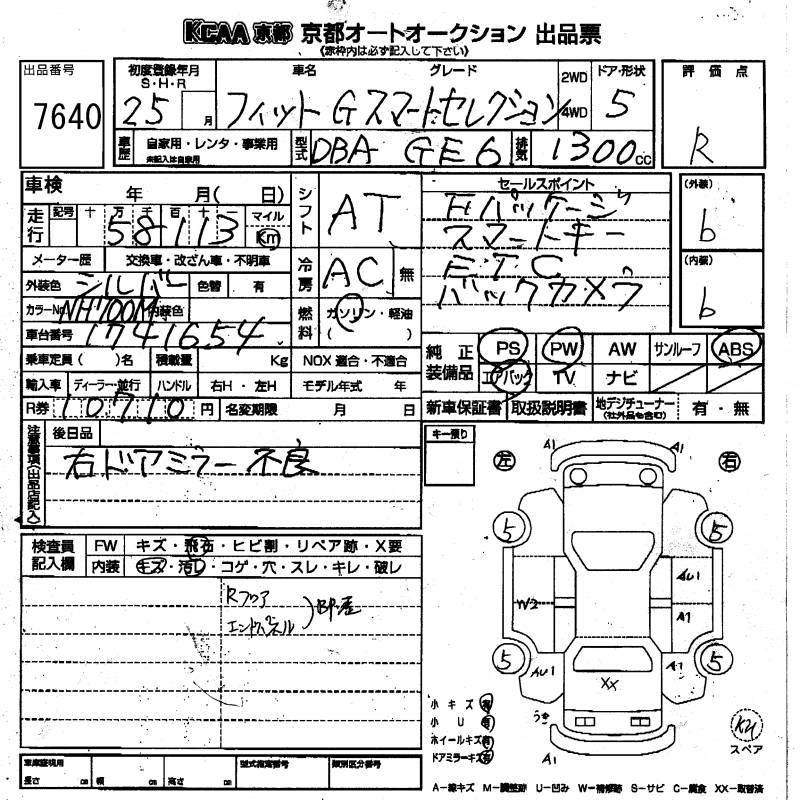 KCAA 京都 京都オートオークション 出品票
《赤枠内は必ず記入して下さい》
出品番号
7640
初度登録年月
S・H・R
25 月
車名 グレード
フィット Gスマートセレクション
2WD
4WD
ドア・形状
5
評価点
R
車歴
自家用・レンタ・事業用
未記入は自家用
型式
DBA GE6
排気
1300cc
車検 年 月( 日)
走行
記号 十 万 千 百 十
58113
マイル
Km
メーター歴 交換車・改ざん車・不明車
外装色 シルバー 色替 有
カラーNo. NH700M 内装色
車台番号 1741654
乗車定員( )名 積載量 Kg
輸入車 ディーラー・並行 ハンドル 右H・左H
R券 10710 円 名変期限 月 日
シフト
AT
冷房
AC 無
燃料
ガソリン・軽油
( )
NOX 適合・不適合
モデル年式 年
セールスポイント
Fパッケージ
スマートキー
ETC
バックカメラ
(外装)
b
(内装)
b
純正装備品
PS PW AW サンルーフ ABS
エアバック TV ナビ
新車保証書 取扱説明書 地デジチューナー(社外品も含む) 有・無
注意事項(出品店記入)
後日品
右ドアミラー不良
検査員記入欄
FW キズ・飛石・ヒビ割・リペア跡・X要
内装 キズ・汚レ・コゲ・穴・スレ・キレ・破レ
Rフロア
エンドパネル
)凹歪
キー預り
左 右
A1 A1
5 5
AU1
W2
A1
5 5
AU1 A1
XX
うき
A1
小キズ 有
小U 有
ホイールキズ 有
ドアミラーキズ 有
スペア
A−線キズ M−調整跡 U−凹み W−補修跡 S−サビ C−腐食 XX−取替済
車庫証明用
長さ cm 幅 cm 高さ cm
型式指定番号
類別区分番号